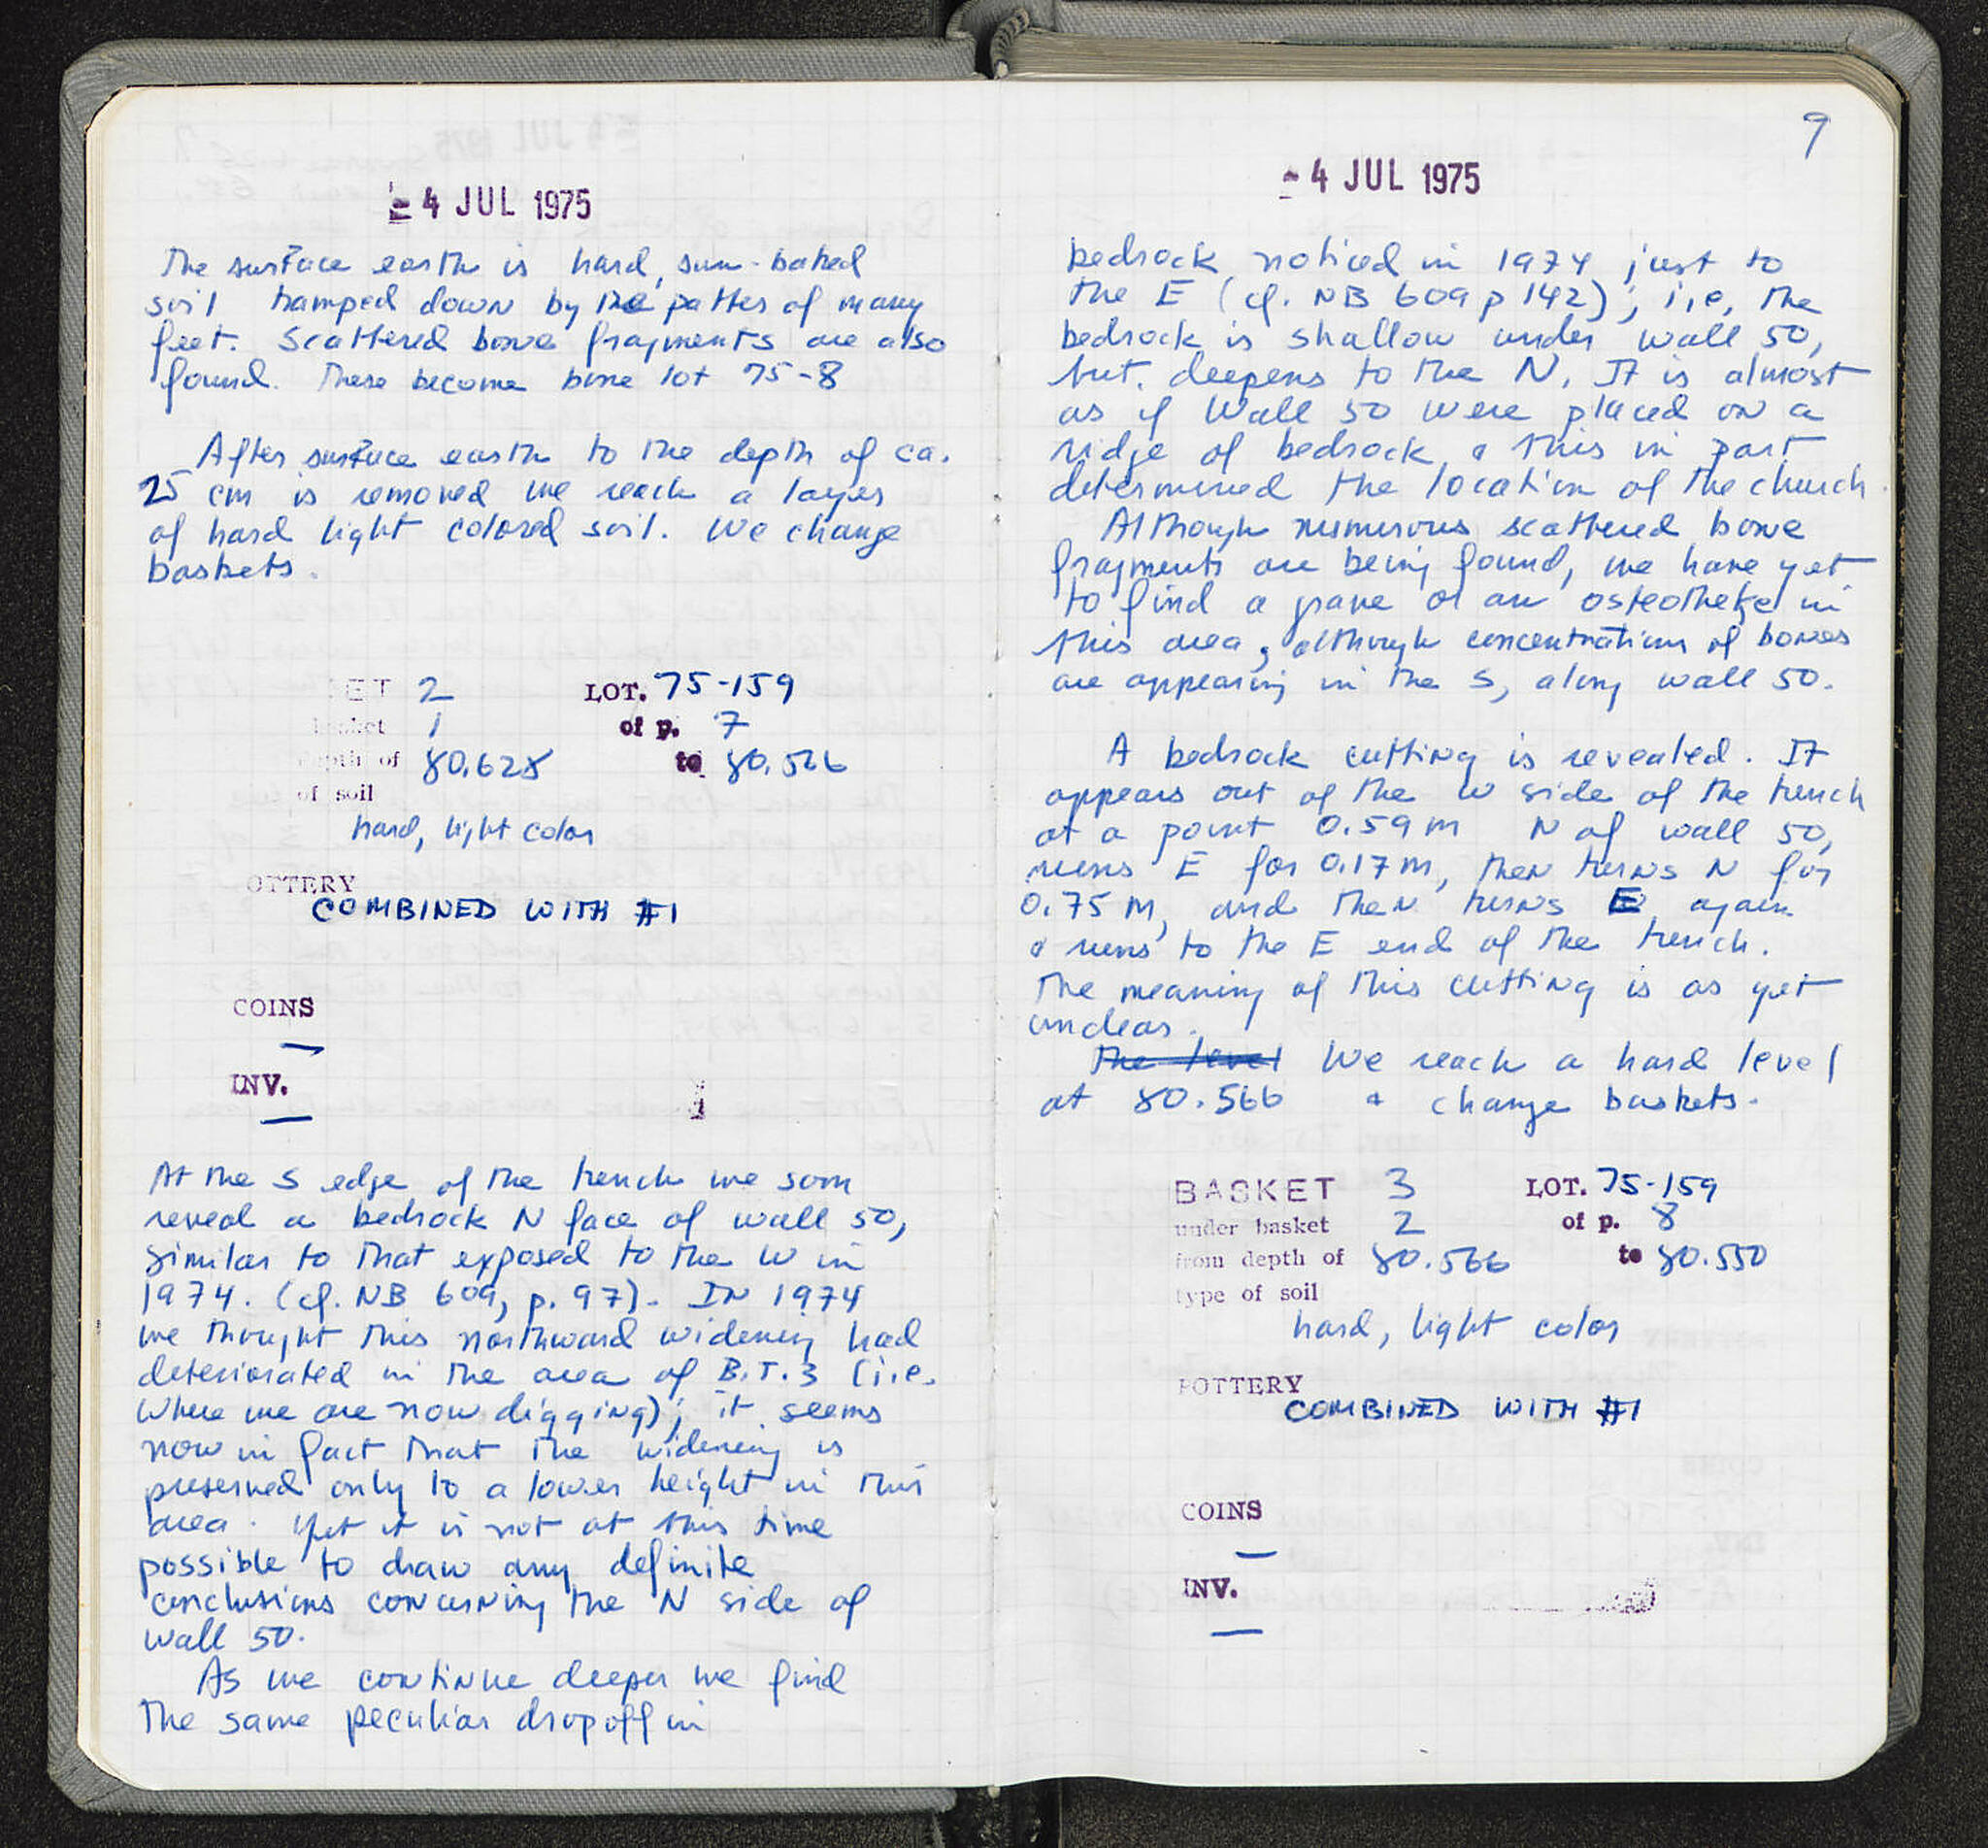 - 4 JUL 1975
The surface earth is hard, sun-baked
soil tramped down by the patter of many
feet. Scattered bone fragments are also
found. These become bone lot 75-8
After surface earth to the depth of ca.
25 cm is removed we reach a layer
of hard light colored soil. We change
baskets.
ET 2 LOT. 75-159
basket 1 of p. 7
depth of 80.628 to 80.566
of soil
hard, light color
OTTERY
COMBINED WITH #1
COINS
—
INV.
—
At the S edge of the trench we soon
reveal a bedrock N face of wall 50,
similar to that exposed to the W in
1974. (cf. NB 609, p. 97). IN 1974
we thought this northward widening had
deteriorated in the area of B.T. 3 (i.e.
where we are now digging); it seems
now in fact that the widening is
preserved only to a lower height in this
area. Yet it is not at this time
possible to draw any definite
conclusions concerning the N side of
wall 50.
As we continue deeper we find
the same peculiar dropoff in
9
- 4 JUL 1975
bedrock noticed in 1974 just to
the E (cf. NB 609 p 142); i.e, the
bedrock is shallow under wall 50,
but deepens to the N. It is almost
as if Wall 50 were placed on a
ridge of bedrock & this in part
determined the location of the church.
Although numerous scattered bone
fragments are being found, we have yet
to find a grave or an osteotheke in
this area, although concentrations of bones
are appearing in the S, along wall 50.
A bedrock cutting is revealed. It
appears out of the W side of the trench
at a point 0.59 m N of wall 50,
runs E for 0.17 m, then turns N for
0.75 m, and then turns E again
& runs to the E end of the trench.
The meaning of this cutting is as yet
unclear.
The level We reach a hard level
at 80.566 & change baskets.
BASKET 3 LOT. 75-159
under basket 2 of p. 8
from depth of 80.566 to 80.550
type of soil
hard, light color
POTTERY
COMBINED WITH #1
COINS
—
INV.
—